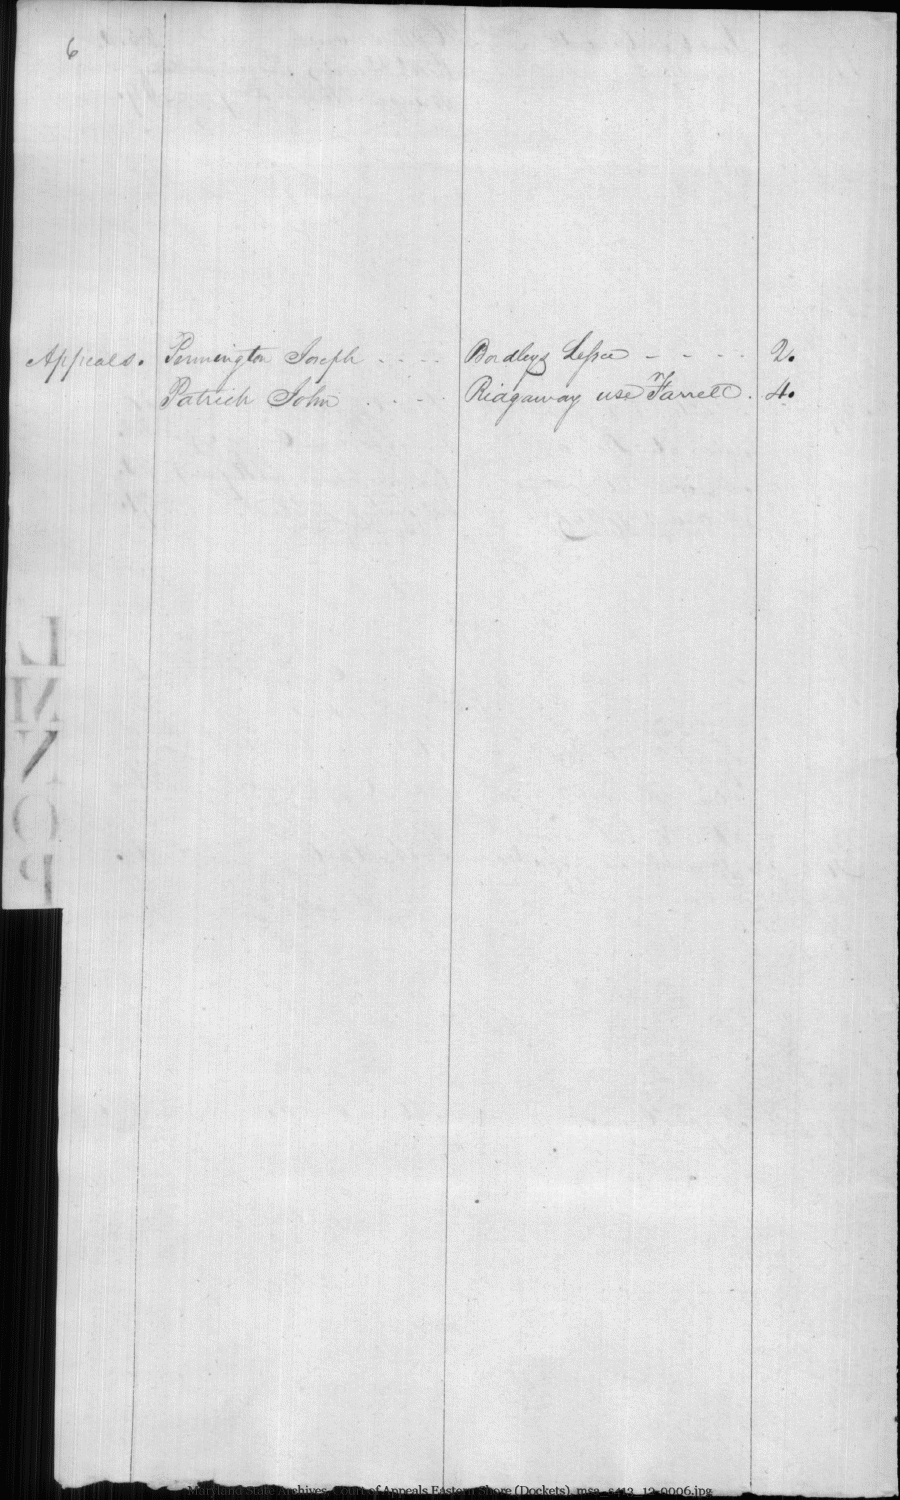 6
Appeals. Pennington Joseph - - - - Bordleys Lessee - - - - 2.
Patrick John . . - . Ridgaway use Farrell . 4.
L
M
N
O
P
Maryland State Archives, Court of Appeals Eastern Shore (Dockets), msa_s413_12-0006.jpg